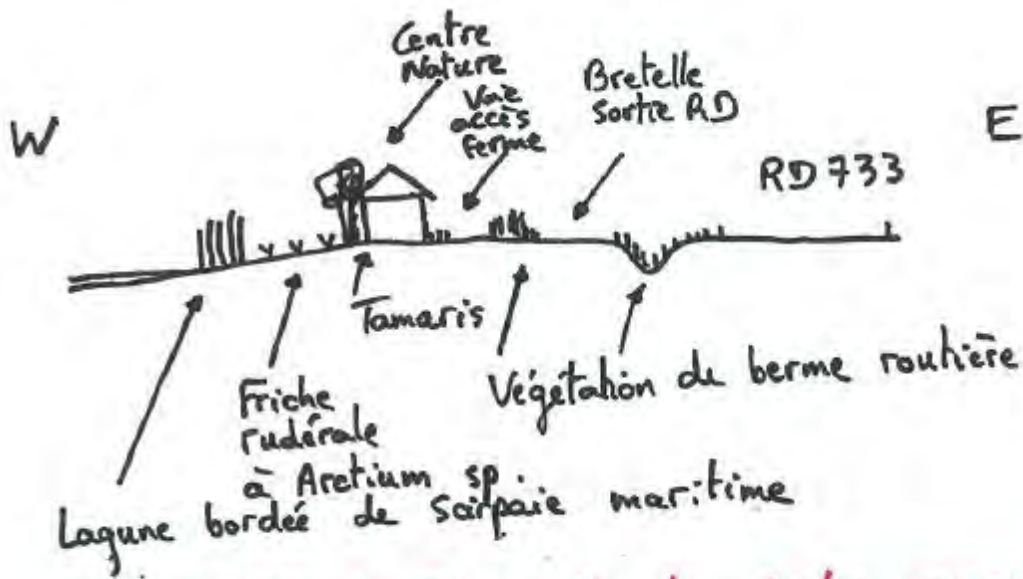 Centre
Nature
Voie
accès
ferme
Bretelle
sortie RD
W
E
RD 733
Tamaris
Végétation de berme routière
Friche
rudérale
à Arctium sp
Lagune bordée de Scirpaie maritime